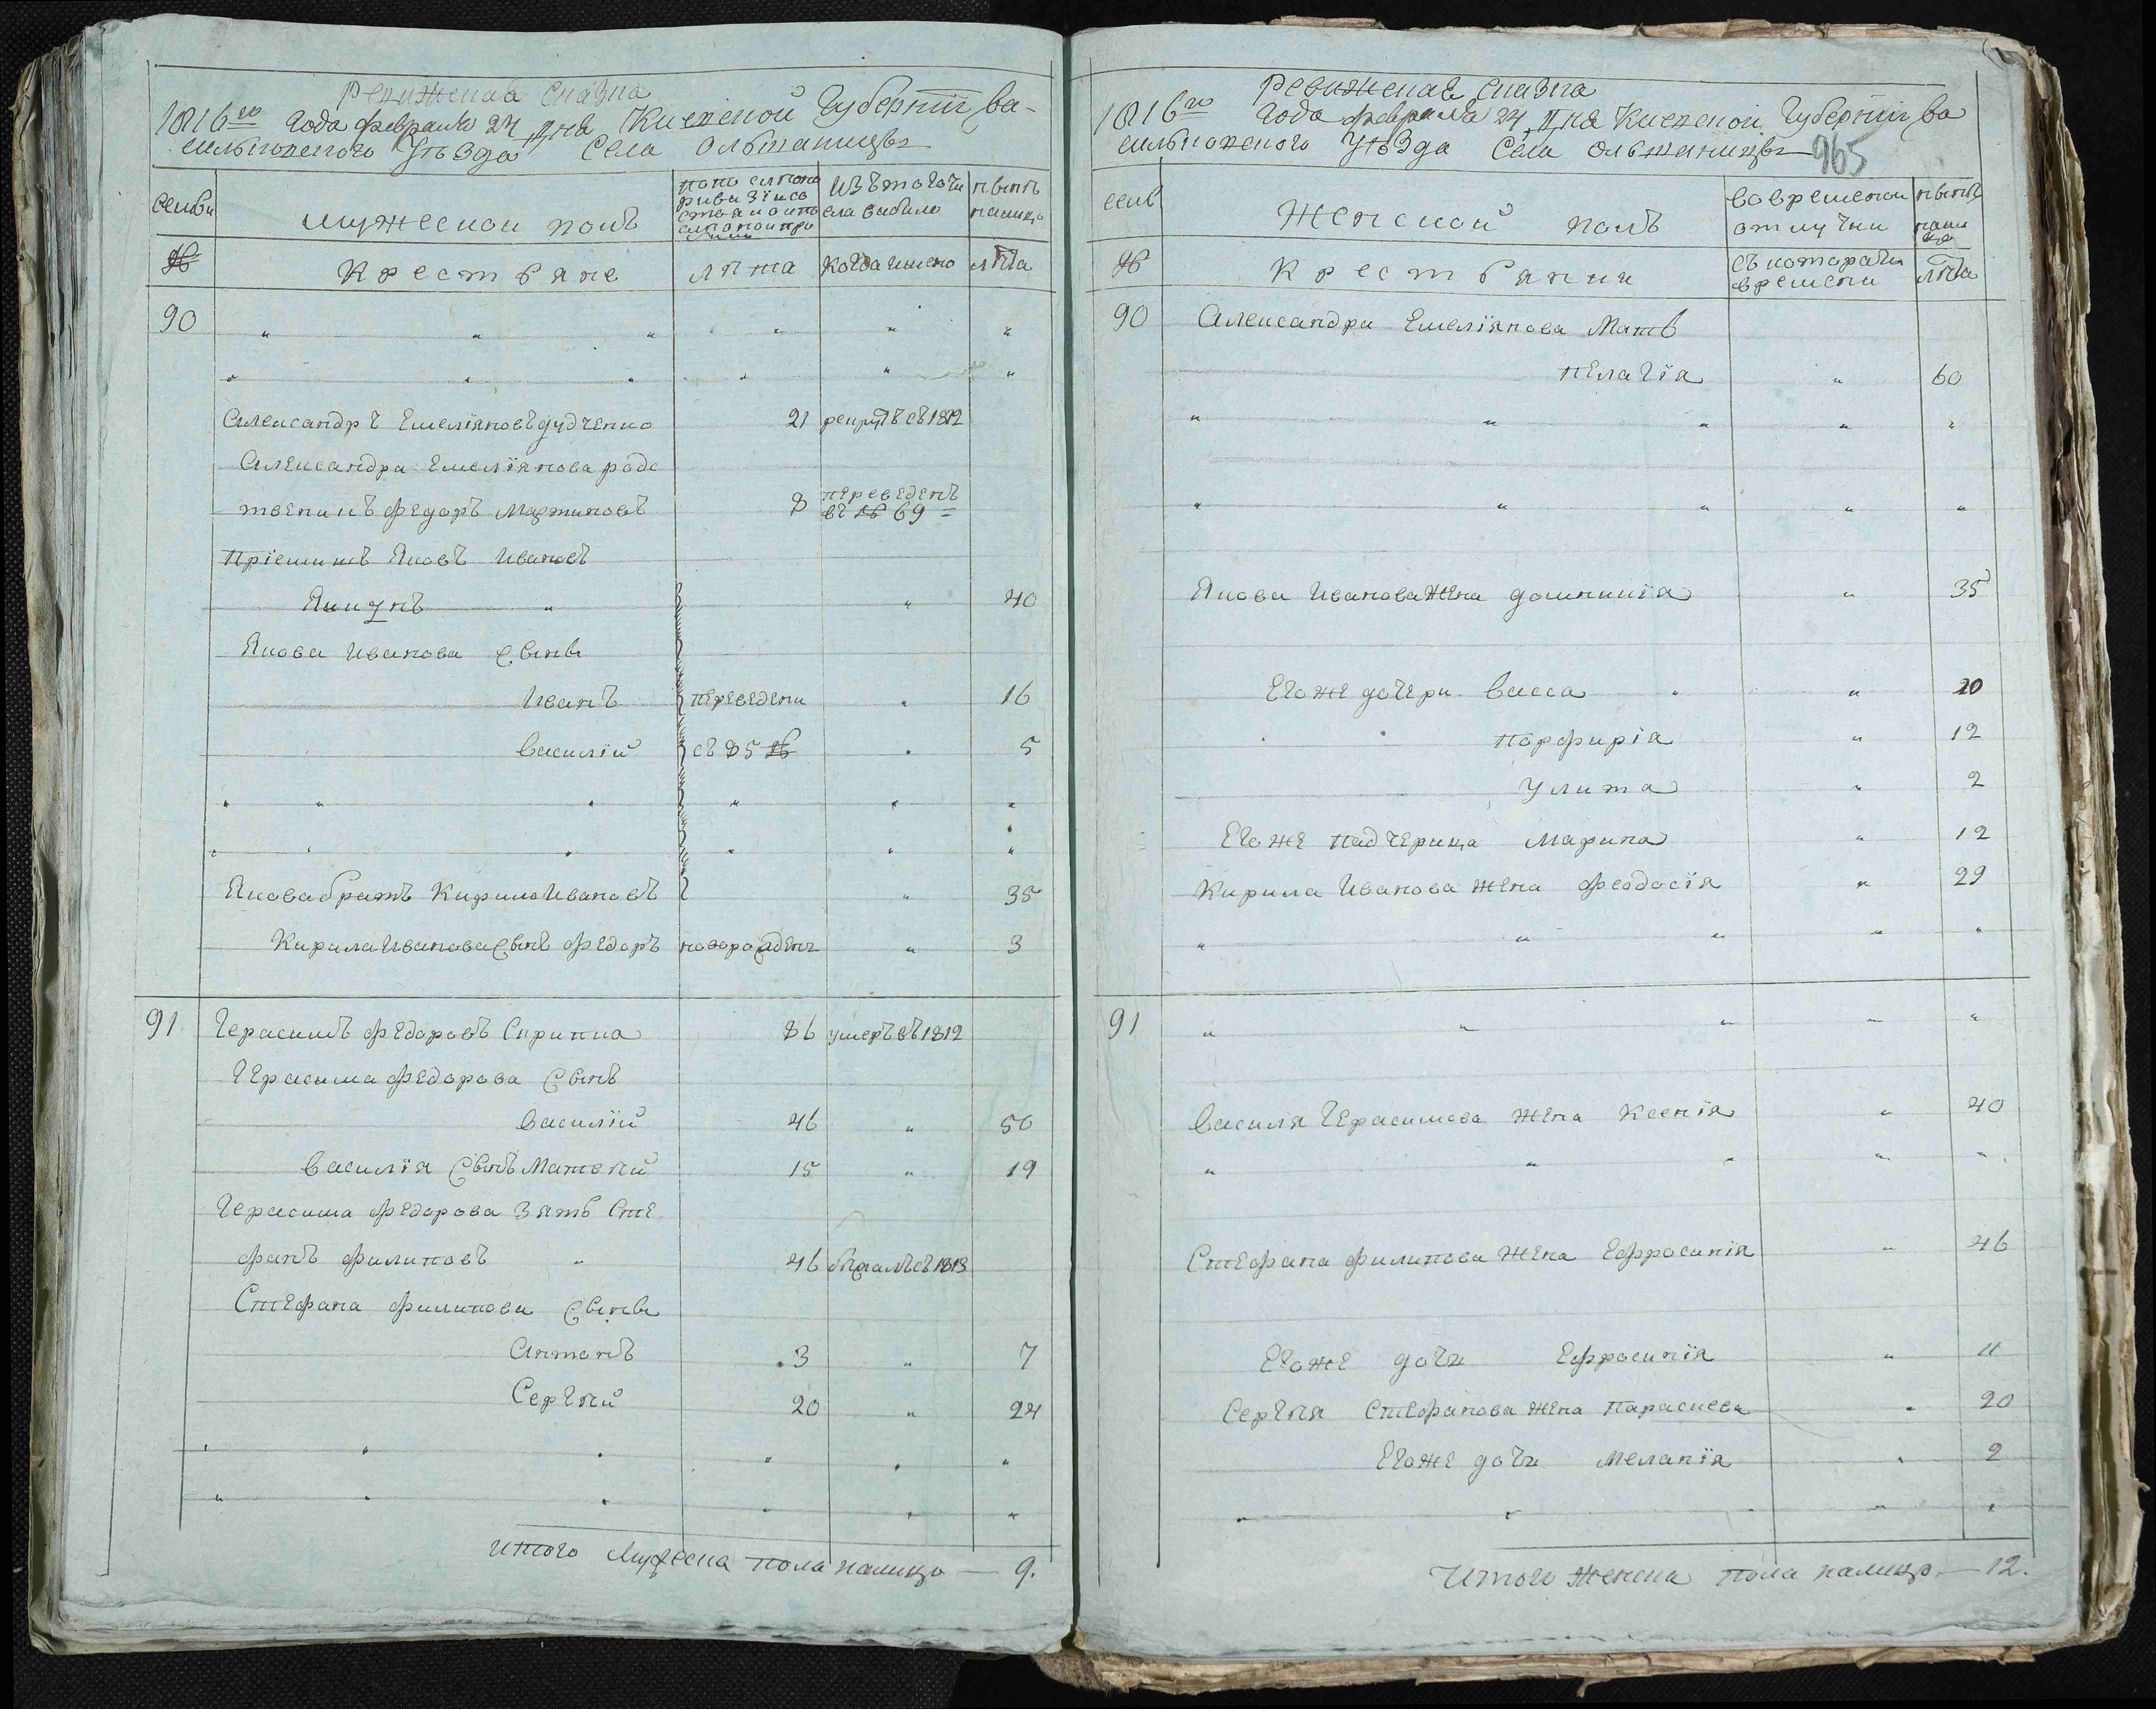 Ревижская Сказка
1816го Года февраля 24 дня Киевской Губернїи ва-
сильковского Уѣзда Села Ольшаницы
семьи
мужеской полъ
по последней ревизїи состояло и после оной прибыло
Изъ того числа выбыло
нынѣ налицо
№
Крестьяне
лѣта
Когда имено
лѣта
90 " " " " " "
" " " " " "
Александръ Емелїяновъ дудченко 21 рекрутъ въ 1812
Александра Емелїянова родс
твеникъ Федоръ Мартиновъ 8 переведенъ въ № 69
Прїемишъ Яковъ Ивановъ
Яцунъ " " 40
Якова Иванова Сыны
Иванъ переведени " 16
Василїй съ 85 № " 5
" " " " " "
" " " " " "
Якова братъ Кирило Ивановъ " 35
Кирила Иванова Сынъ Федоръ новорожденъ " 3
91 Герасимъ Федоровъ Скрипка 86 умеръ въ 1812
Герасима Федорова Сынъ
Василїй 46 " 50
Василїя Сынъ Матвѣй 15 " 19
Герасима Федорова Зять Сте
фанъ Филиповъ " 46 бѣжалъ въ 1813
Стефана Филипова Сыны
Антонъ 3 " 7
Сергѣй 20 " 24
" " " " " "
" " " " " "
Итого Мужеска пола налицо — 9.
Ревижская Сказка
1816го Года февраля 24 дня Киевской Губернїи ва
сильковского Уѣзда Села Ольшаницы
965
семьи
Женской полъ
во временой отлучки
нынѣ налицо
№
Крестьянки
съ которого времени
лѣта
90 Александра Емелїянова Мать
Пелагїя " 60
" " " " "
" " " " "
Якова Иванова Жена домникїя " 35
Его же дочери Васса " " 20
" " Порфирїя " 12
Улита " 2
Его же падчерица Марина " 12
Кирила Иванова жена Феодосїя " 29
" " " " "
91 " " " " "
Василя Герасимова жена Ксенїя " 40
" " " " "
Стефана Филипова жена Ефросинїя " 46
Его же дочь Ефросинїя " 11
Сергѣя Стефанова жена Параскева " 20
Его же дочь Меланїя " 2
" " " " "
Итого Женска пола налицо — 12.